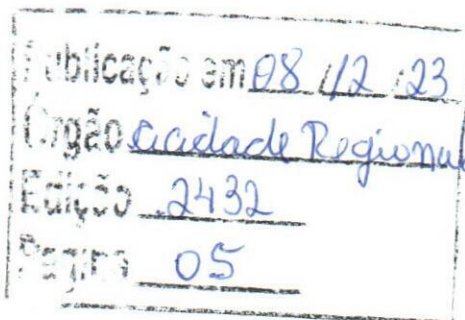 Publicação em 08 /12 /23
Órgão a cidade Regional
Edição 2432
Pagina 05